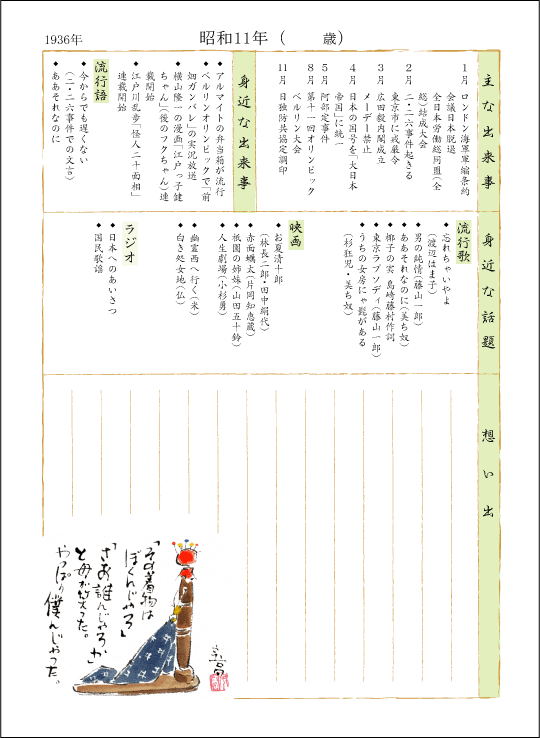 1936年
昭和11年（　　歳）
主な出来事
1月　ロンドン海軍軍縮条約
会議日本脱退
全日本労働総同盟（全
総）結成大会
2月　二・二六事件起きる
東京市に戒厳令
3月　広田毅内閣成立
メーデー禁止
4月　日本の国号を「大日本
帝国」に統一
5月　阿部定事件
8月　第十一回オリンピック
ベルリン大会
11月　日独防共協定調印
身近な出来事
◆アルマイトの弁当箱が流行
◆ベルリンオリンピックで「前
畑ガンバレ」の実況放送
◆横山隆一の漫画「江戸っ子健
ちゃん」（後のフクちゃん）連
載開始
◆江戸川乱歩「怪人二十面相」
連載開始
流行語
◆今からでも遅くない
（二・二六事件での文言）
◆ああそれなのに
身近な話題
流行歌
◆忘れちゃいやよ
（渡辺はま子）
◆男の純情（藤山一郎）
◆ああそれなのに（美ち奴）
◆椰子の実　島崎藤村作詞
◆東京ラプソディ（藤山一郎）
◆うちの女房にゃ髭がある
（杉狂児・美ち奴）
映画
◆お夏清十郎
（林長二郎・田中絹代）
◆赤面蠣太（片岡知恵蔵）
◆祇園の姉妹（山田五十鈴）
◆人生劇場（小杉勇）
◆幽霊西へ行く（米）
◆白き処女地（仏）
ラジオ
◆日本へのあいさつ
◆国民歌謡
想い出
「その着物は
ぼくんじゃろ」
「さあ誰んじゃろか」
と母が笑った。
やっぱり僕んじゃった。